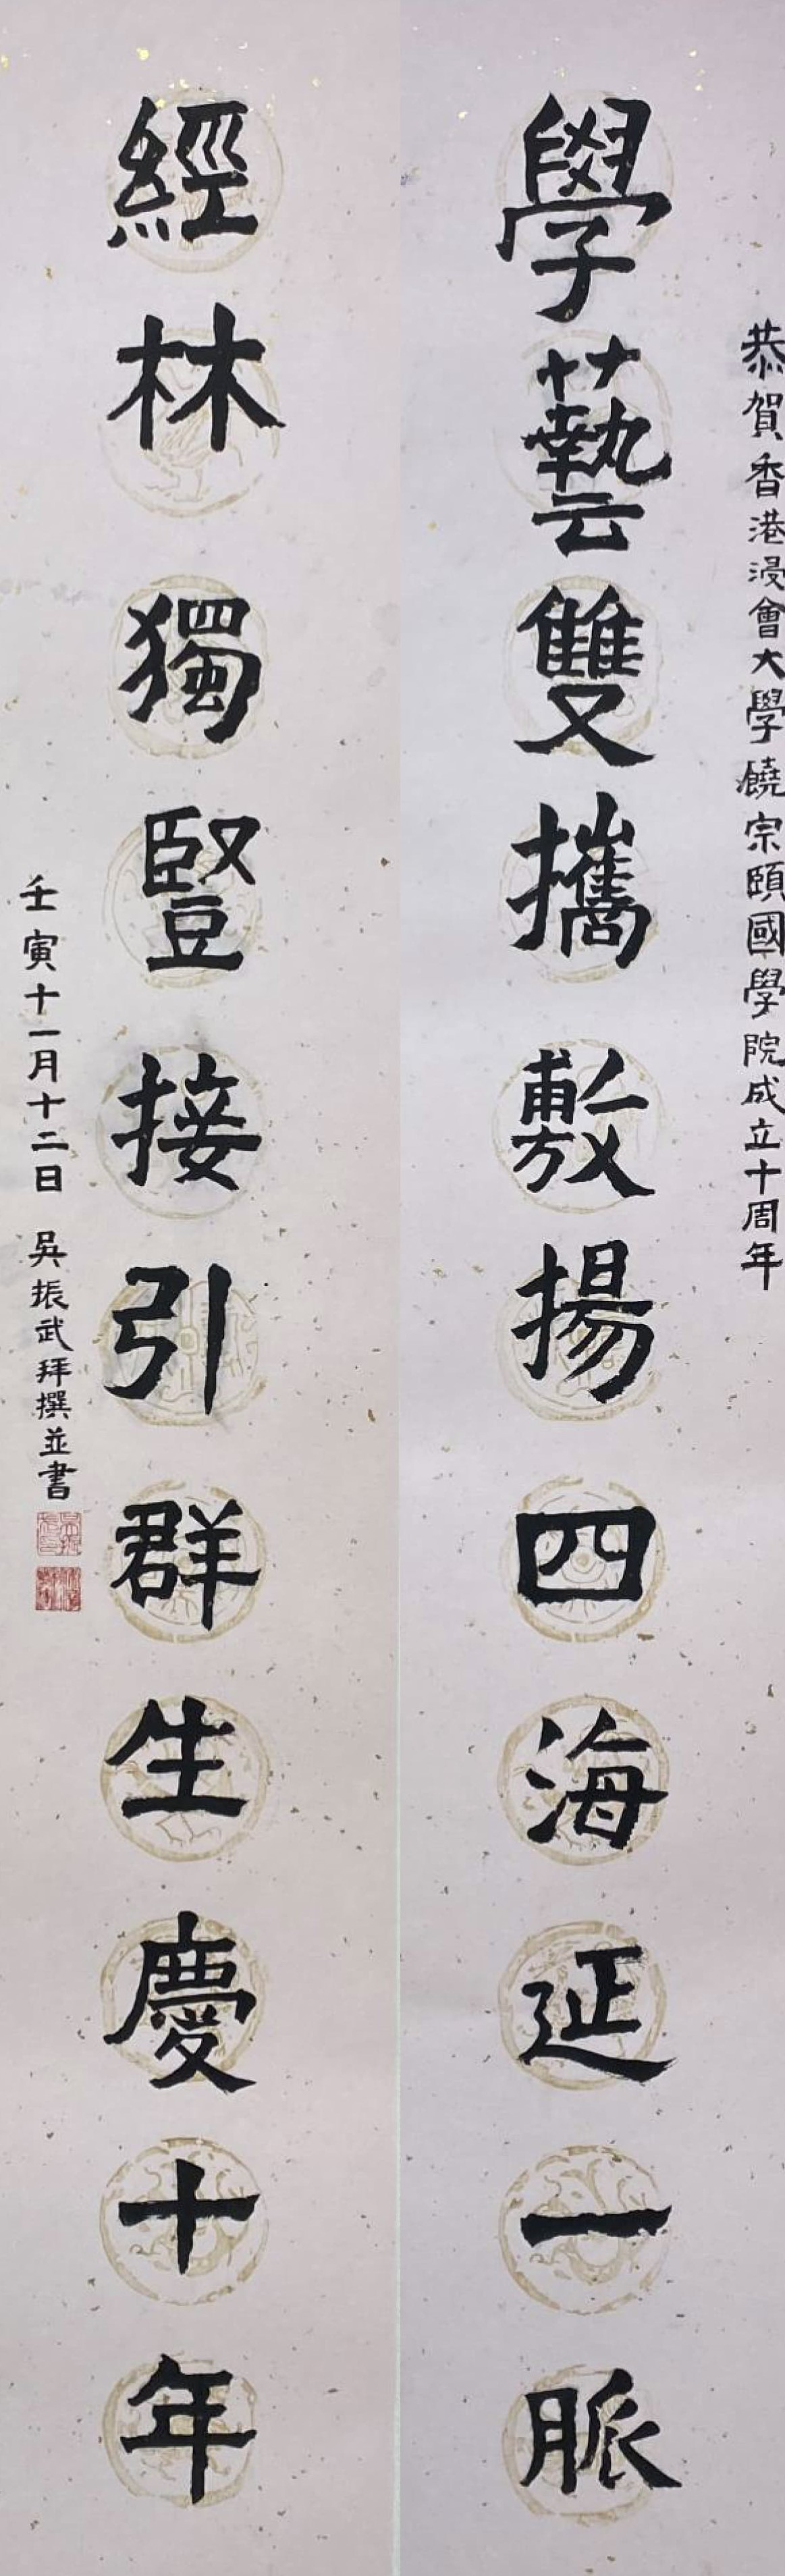 恭賀香港浸會大學饒宗頤國學院成立十周年
學藝雙攜敷揚四海延一脈
經林獨豎接引群生慶十年
壬寅十一月十二日 吳振武拜撰並書